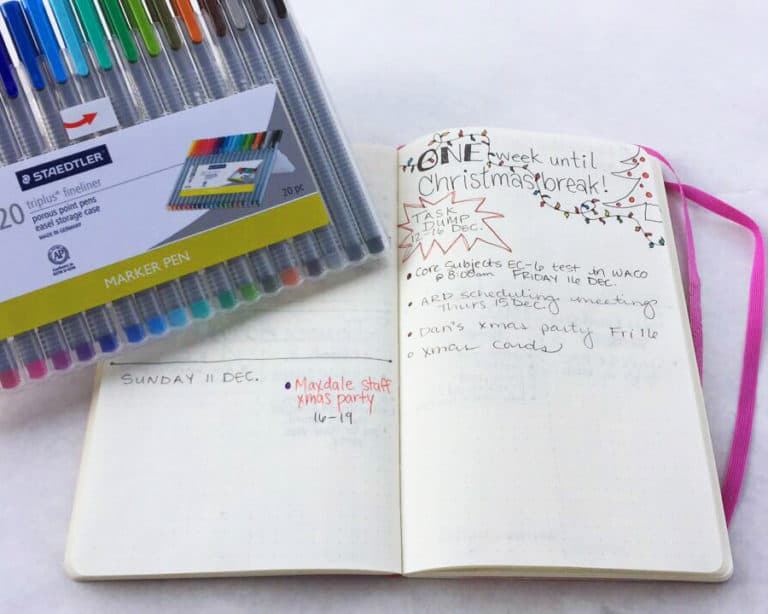 STAEDTLER
20 triplus® fineliner
porous point pens
easel storage case
MADE IN GERMANY
AP
20 pc
MARKER PEN
SUNDAY 11 DEC.
• Maxdale staff
xmas party
16-19
ONE week until
Christmas break!
TASK
DUMP
12-16 DEC.
• Core Subjects EC-6 test in WACO
@ 8:00am FRIDAY 16 DEC.
• ARD scheduling meeting
Thurs 15 Dec
• Dan's xmas party Fri 16
• xmas cards